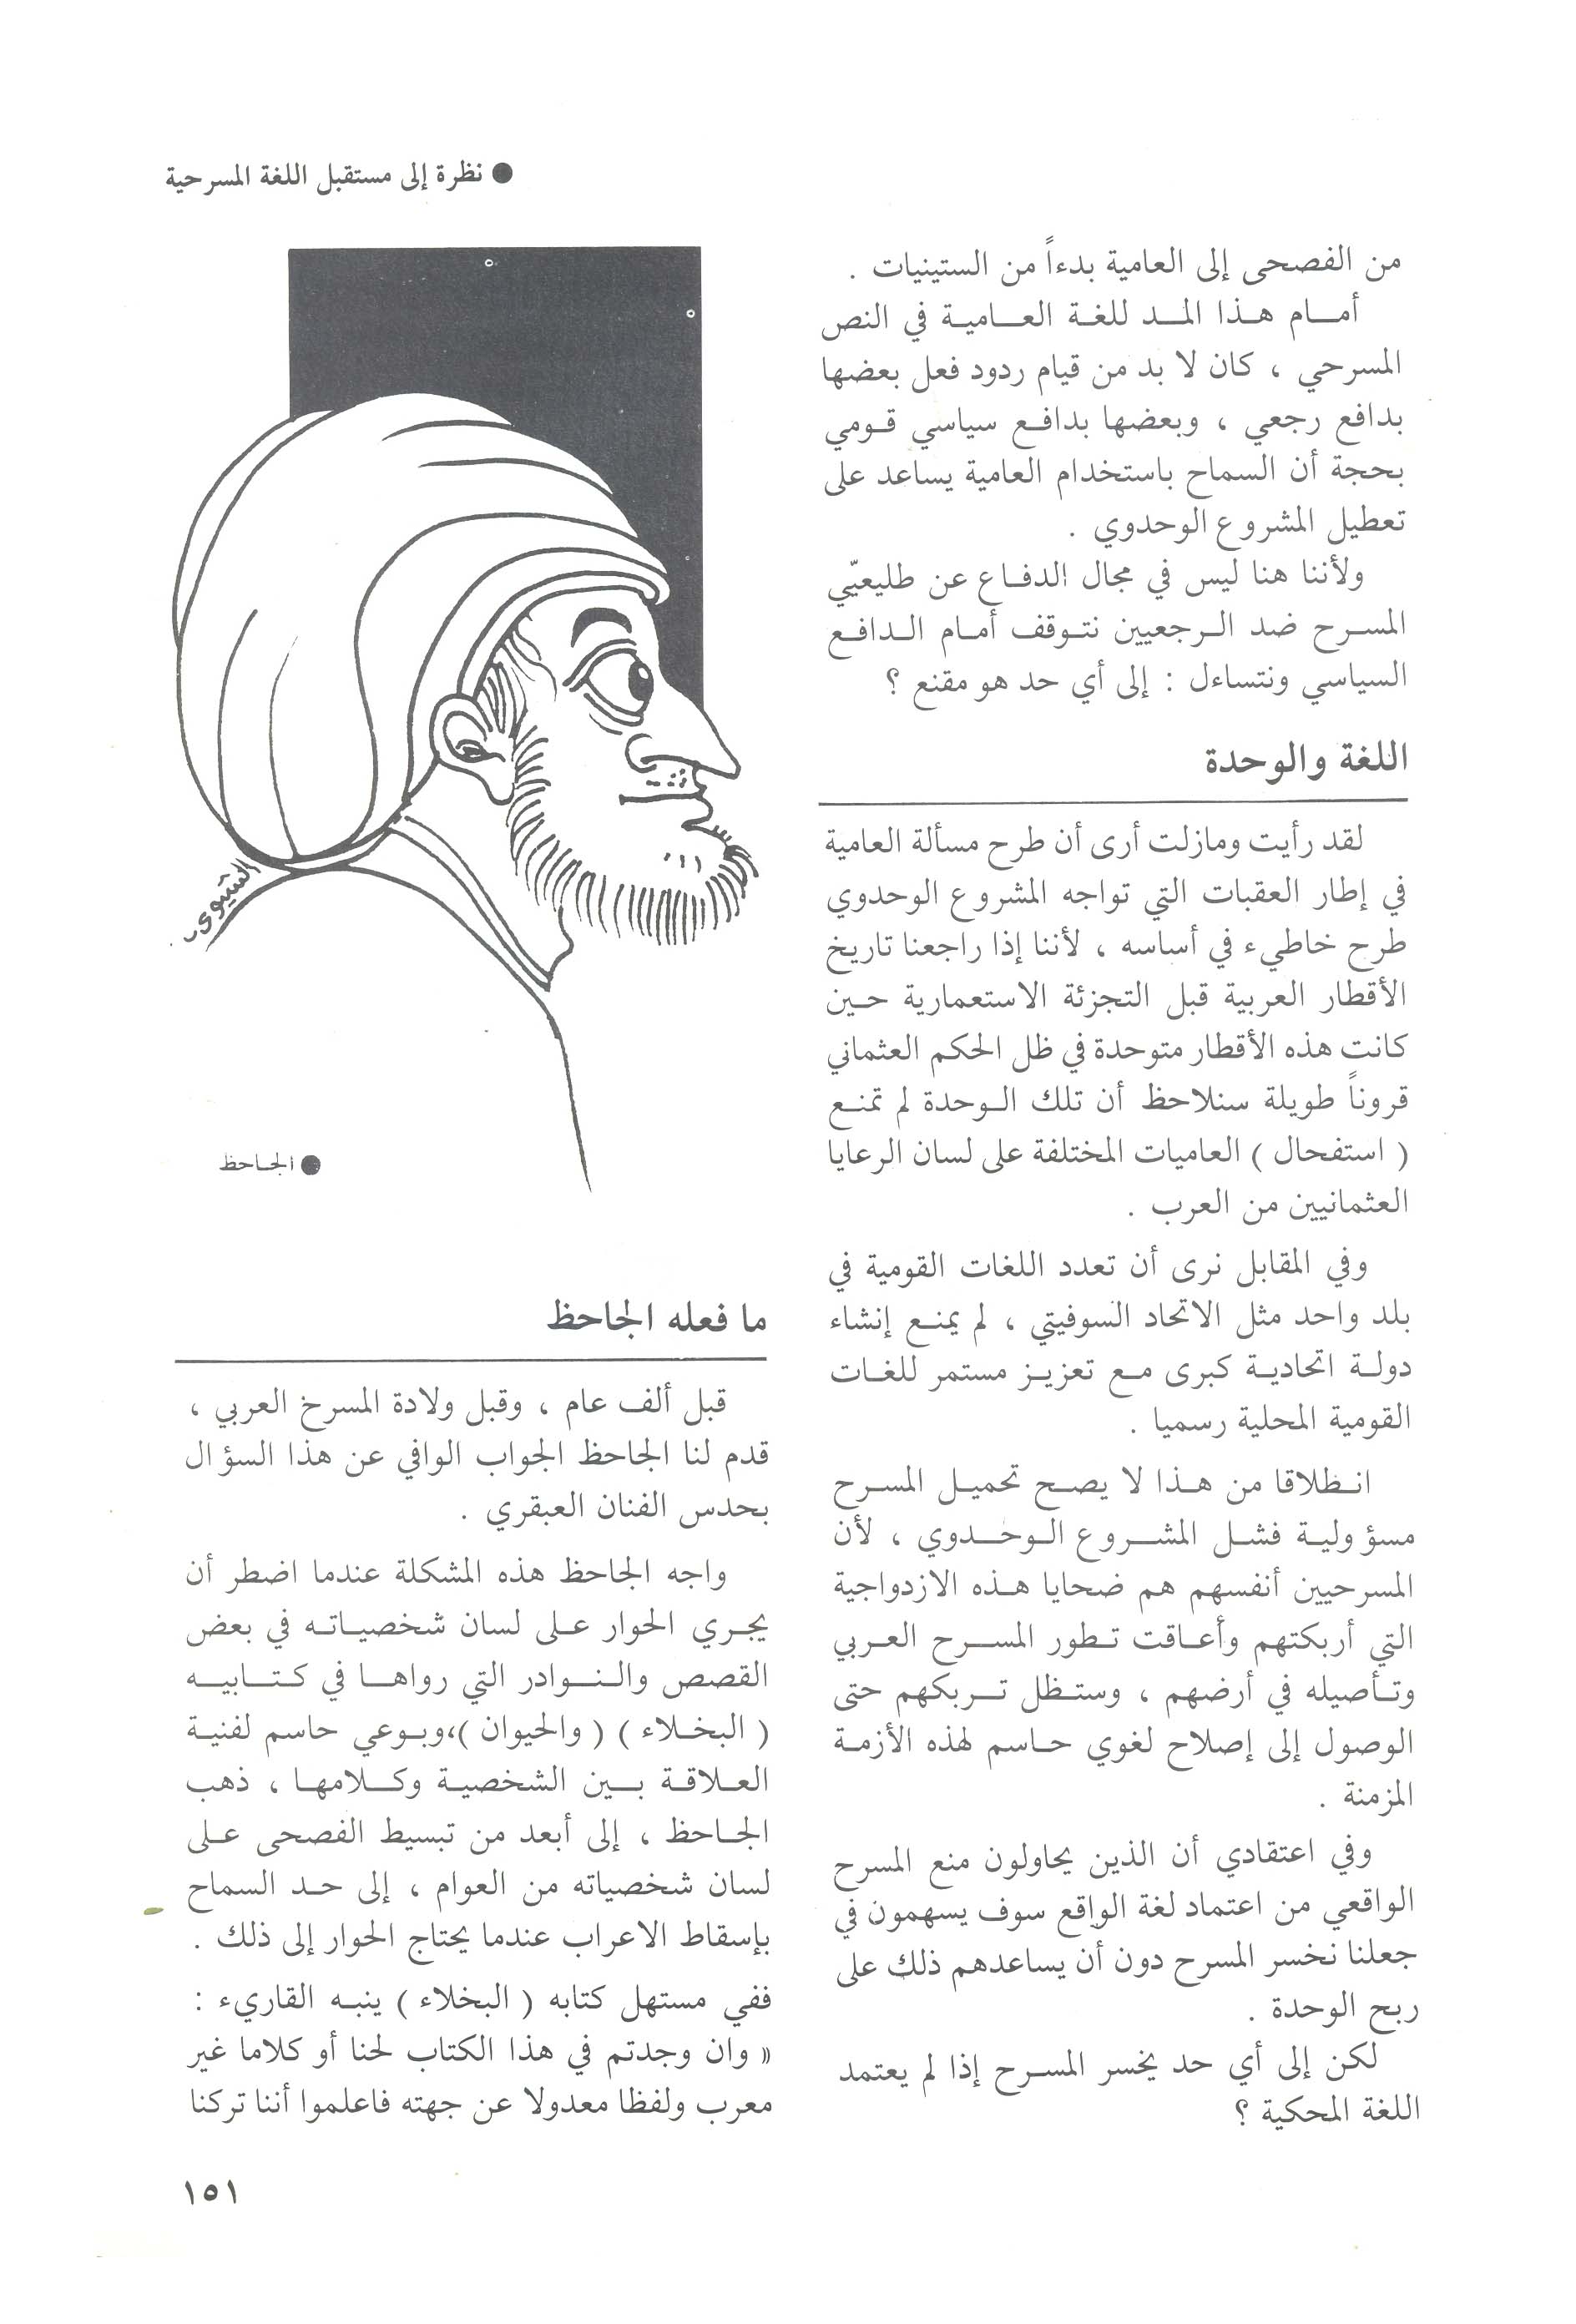 ● نظرة إلى مستقبل اللغة المسرحية
من الفصحى إلى العامية بدءاً من الستينيات .
أمـام هـذا المـد للغـة العـاميـة في النص
المسرحي ، كان لا بد من قيام ردود فعل بعضها
بدافع رجعي ، وبعضها بدافـع سياسي قـومي
بحجة أن السماح باستخدام العامية يساعد على
تعطيل المشروع الوحدوي .
ولأننا هنا ليس في مجال الدفـاع عن طليعيّي
المسـرح ضد الـرجعيين نتـوقف أمـام الـدافـع
السياسي ونتساءل : إلى أي حد هو مقنع ؟
اللغة والوحدة
لقد رأيت ومازلت أرى أن طرح مسألة العامية
في إطار العقبات التي تواجه المشروع الوحدوي
طرح خاطيء في أساسه ، لأننا إذا راجعنا تاريخ
الأقطار العربية قبل التجزئة الاستعمارية حـين
كانت هذه الأقطار متوحدة في ظل الحكم العثماني
قروناً طويلة سنلاحظ أن تلك الـوحدة لم تمنـع
( استفحال ) العاميات المختلفة على لسان الرعايا
العثمانيين من العرب .
وفي المقابل نرى أن تعدد اللغات القومية في
بلد واحد مثل الاتحاد السوفيتي ، لم يمنـع إنشاء
دولـة اتحاديـة كبرى مـع تعزيـز مستمر للغـات
القومية المحلية رسميا .
انـطلاقا من هـذا لا يصـح تحميـل المسـرح
مسؤوليـة فشـل المشـروع الـوحـدوي ، لأن
المسرحيين أنفسهم هم ضحايا هـذه الازدواجية
التي أربكتهم وأعـاقت تـطور المسـرح العـربي
وتـأصيله في أرضهم ، وستـظل تـربكهم حتى
الوصول إلى إصلاح لغوي حـاسم لهذه الأزمـة
المزمنة .
وفي اعتقادي أن الذين يحاولون منع المسرح
الواقعي من اعتماد لغة الواقع سوف يسهمون في
جعلنا نخسر المسرح دون أن يساعدهم ذلك على
ربح الوحدة .
لكن إلى أي حد يخسر المسـرح إذا لم يعتمد
اللغة المحكية ؟
السيوى
● الجـاحظ
ما فعله الجاحظ
قبل ألف عام ، وقبل ولادة المسرح العربي ،
قدم لنا الجاحظ الجواب الوافي عن هذا السؤال
بحدس الفنان العبقري .
واجه الجاحظ هذه المشكلة عندما اضطر أن
يجـري الحوار عـلى لسان شخصيـاتـه في بعض
القصص والـنـوادر التي رواهـا في كـتـابيـه
( البخـلاء ) ( والحيوان )،وبـوعي حاسم لفنيـة
العـلاقـة بـين الشخصيـة وكـلامهـا ، ذهب
الجـاحظ ، إلى أبعد من تبسيط الفصحى عـلى
لسان شخصياته من العوام ، إلى حـد السماح
بإسقاط الاعراب عندما يحتاج الحوار إلى ذلك .
ففي مستهل كتابه ( البخلاء ) ينبـه القاريء :
« وان وجدتم في هذا الكتاب لحنا أو كلاما غير
معرب ولفظا معدولا عن جهته فاعلموا أننا تركنا
١٥١